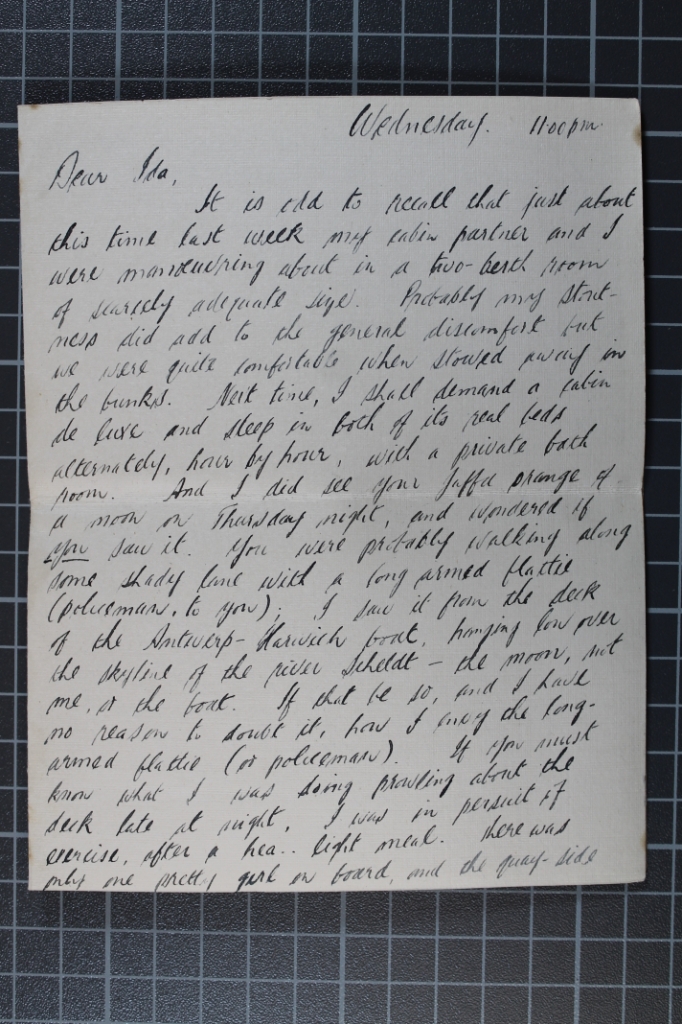 Wednesday. 11.00pm.
Dear Ida,
It is odd to recall that just about
this time last week my cabin partner and I
were manoeuvring about in a two-berth room
of scarcely adequate size. Probably my stout-
ness did add to the general discomfort but
we were quite comfortable when stowed away in
the bunks. Next time, I shall demand a cabin
de luxe and sleep in both of its real beds
alternately, hour by hour, with a private bath
room. And I did see your Jaffa orange of
a moon on Thursday night, and wondered if
you saw it. You were probably walking along
some shady lane with a long armed flattie
(policeman, to you); I saw it from the deck
of the Antwerp-Harwich boat, hanging low over
the skyline of the river Scheldt - the moon, not
me, or the boat. If that be so, and I have
no reason to doubt it, how I envy the long-
armed flattie (or policeman). If you must
know what I was doing prowling about the
deck late at night, I was in persuit of
exercise, after a hea.. light meal. There was
only one pretty girl on board, and the quay-side